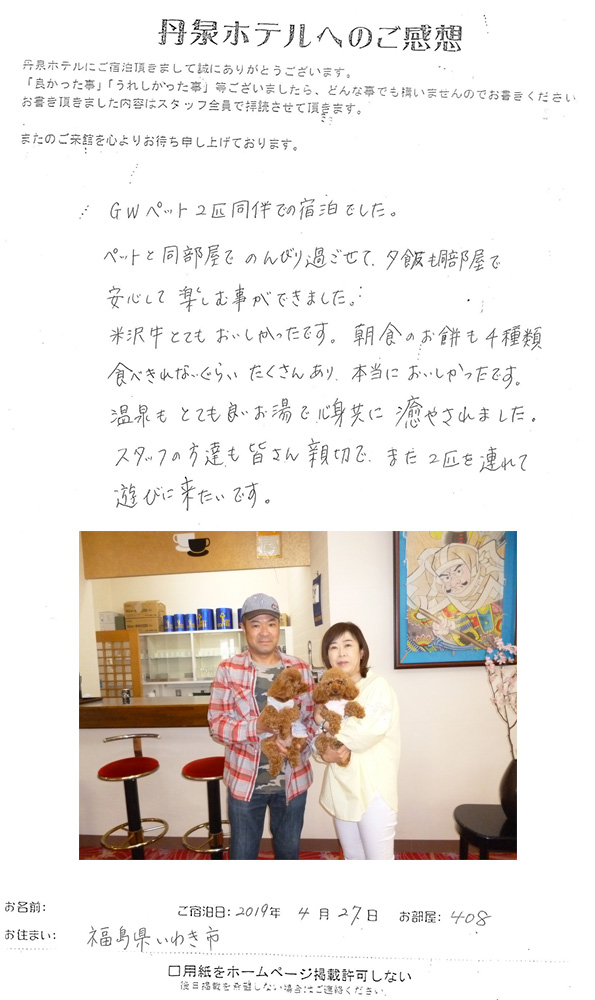 丹泉ホテルへのご感想
丹泉ホテルにご宿泊頂きまして誠にありがとうございます。
「良かった事」「うれしかった事」等ございましたら、どんな事でも構いませんのでお書きください
お書き頂きました内容はスタッフ全員で拝読させて頂きます。
またのご来館を心よりお待ち申し上げております。
GWペット2匹同伴での宿泊でした。
ペットと同部屋でのんびり過ごせて、夕飯も同部屋で
安心して楽しむ事ができました。
米沢牛とてもおいしかったです。朝食のお餅も4種類
食べきれないぐらいたくさんあり、本当においしかったです。
温泉もとても良いお湯で心身共に癒やされました。
スタッフの方達も皆さん親切で、また2匹を連れて
遊びに来たいです。
お名前:
ご宿泊日:2019年 4月27日 お部屋:408
お住まい: 福島県いわき市
□用紙をホームページ掲載許可しない
後日掲載を希望しない場合はご連絡ください。